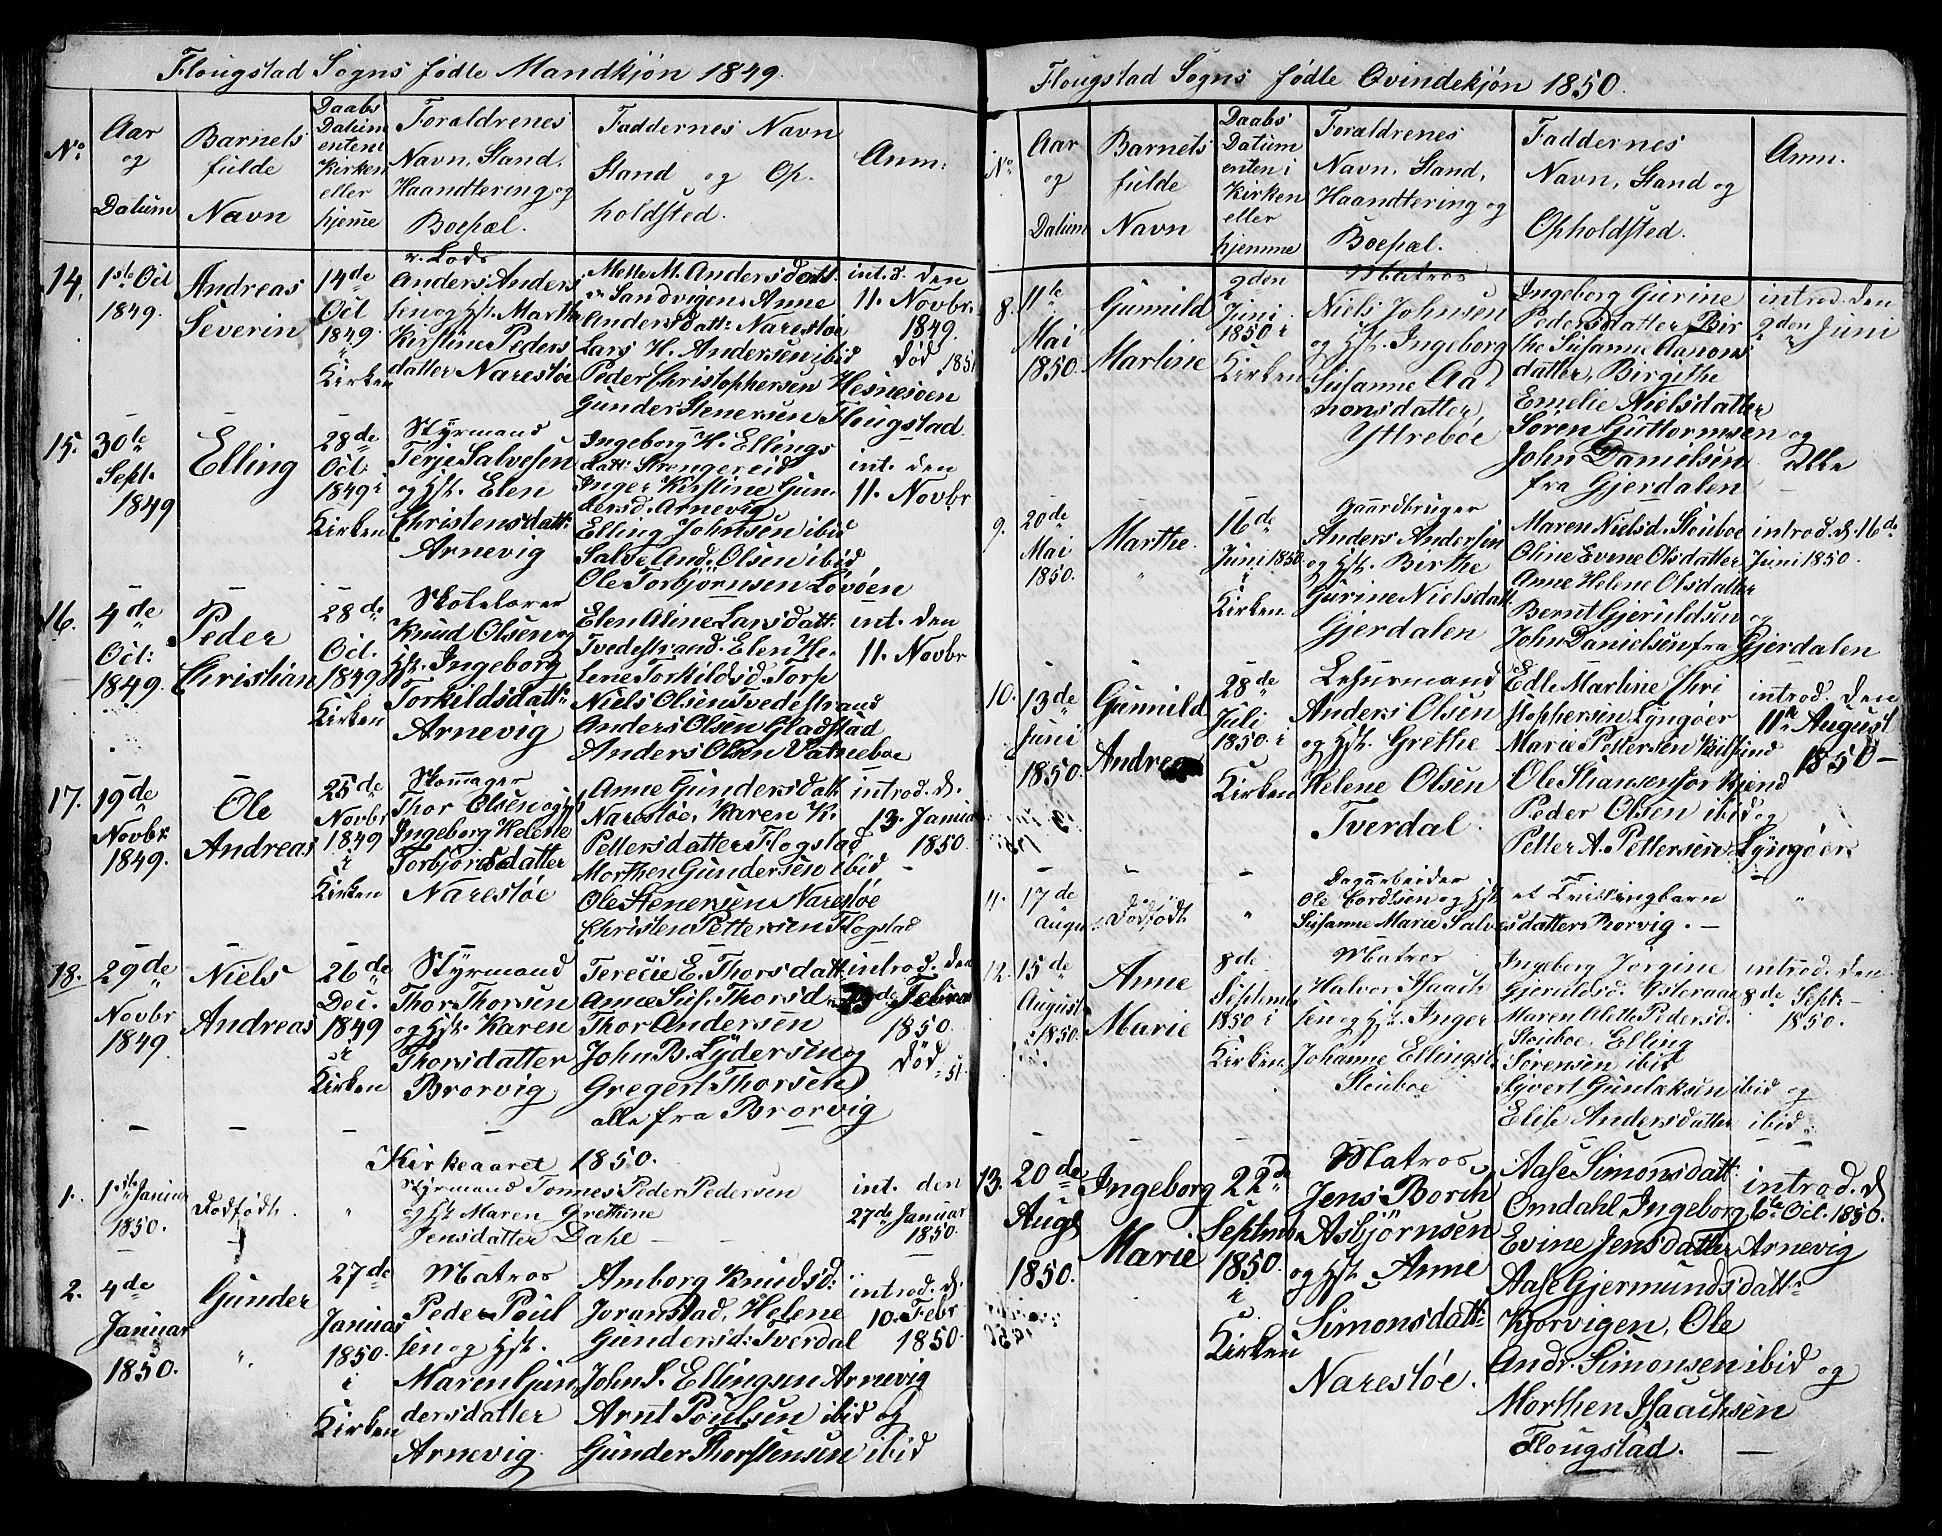 Flougstad Sogns fødte Mandkjön 1849.
No
Aar
og
Datum
Barnets
fulde
Navn
Daabs
Datum
enten i
Kirken
eller
hjemme
Foraldrenes
Navn, Stand,
Haandtering og
Boepæl.
Faddernes Navn
Stand og Op-
holdsted.
Anm:
14.
1ste Oct
1849.
Andreas
Severin
14de
Oct
1849
i
Kirken
Lods
Anders Anders
sen og Hst. Marthe
Kirstine Peders
datter Narestöe
Mette M. Andersdatt.
Sandvigen, Anne
Andersdatt: Narestöe
Lars H. Andersen ibid
Peder Christophersen Hesnesöen
Gunder Stenersen Flougstad.
int. d. den
11. Novbr.
1849
död 1851
15.
30te
Sept.
1849
Elling
28de
Oct
1849 i
Kirken
Styrmand
Terje Salvesen
og Hst. Elen
Christensdatt:
Arnevig
Ingeborg H. Ellings
datt: Strengereid
Inger Kirstine Gun-
dersd. Arnevig
Elling Johnsen ibid
Salve And. Olsen ibid
Ole Torbjörnsen Lövöen
int. den
11. Novbr
16.
4de
Oct:
1849.
Peder
Christian
28de
Oct.
1849 i
Kirken
Skolelærer
Knud Olsen og
Hst. Ingeborg
Torkildsdatt:
Arnevig
Elen Aline Larsdatt.
Tvedestrand. Elen He-
lene Torkildsd. Torp
Niels Olsen Tvedestrand
Anders Olsen Gladstad
Anders Olsen Vatneboe
int. den
11. Novbr
17.
19de
Novbr
1849.
Ole
Andreas
25de
Novbr
1849
i
Kirken
Skomager
Thor Olsen og Hst
Ingeborg Helene
Torbjörnsdatter
Narestöe
Anne Gundersdatt
Narestöe, Karen K.
Pettersdatter Flogstad
Morthen Gundersen ibid
Ole Stenersen Narestöe
Christen Pettersen Flogstad
introd. d.
13. Januar
1850.
18.
29de
Novbr
1849
Niels
Andreas
26de
Dec.
1849
i
Kirken
Styrmand
Thor Thorsen
og Hst. Karen
Thorsdatter
Brorvig
Terecie E. Thorsdatt.
Anne Sus. Thorsd.
Thor Andersen
John B. Lydersen og
Gregert Thorsen
alle fra Brorvig
introd. den
Februar
1850.
död 51.
Kirkeaaret 1850.
1.
1ste Januar
1850.
Dödfödt.
Styrmand Tonnes Peder Pedersen
og Hst. Maren Grethine
Jensdatter Dahe
int. den
27de Januar
1850.
2.
4de
Januar
1850.
Gunder
27de
Januar
1850.
i
Kirken
Matros
Peder Poul
sen og Hst.
Maren Gun
dersdatter
Arnevig.
Amborg Knudsd:
Joranstad, Helene
Gundersd: Tverdal
John S. Ellingsen Arnevig
Arnt Poulsen ibid og
Gunder Thorstensen ibid
introd. d.
10. Febr
1850.
Flougstad Sogns fødte Qvindekjön 1850.
No
Aar
og
Datum
Barnets
fulde
Navn
Daabs
Datum
enten i
Kirken
eller
hjemme
Foraldrenes
Navn, Stand,
Haandtering og
Boepæl.
Faddernes
Navn, Stand og
Opholdsted.
Anm.
8.
11te
Mai
1850.
Gunild
Martine
9den
Juni
1850 i
Kirken
Matros
Niels Johnsen
og Hst. Ingeborg
Susanne Aa-
nonsdatter,
Yttreböe
Ingeborg Gurine
Pedersdatter, Bir
the Susanne Aanons
datter, Birgithe
Emelie Nielsdatter
Sören Guttormsen og
John Danielsen alle
fra Gjerdalen
introd. den
9den Juni
9.
20de
Mai
1850.
Marthe
16de
Juni 1850
i
Kirken
Gaardbruger
Anders Andersen
og Hst. Birthe
Gurine Nielsdatt.
Gjerdalen
Maren Nielsd. Stouboe
Oline Evene Olsdatter
Anne Helene Olsdatter
Bernt Gjeruldsen og
John Danielsen fra Gjerdalen
introd. d. 16de
Juni 1850.
10.
13de
Juni
1850.
Gunnild
Andrea
28de
Juli
1850 i
Kirken
Anders Olsen
og Hst. Grethe
Helene Olsen
Tverdal.
Edle Martine Chri
stophersen, Lyngöer
Marie Pettersen Kilsund
Ole Stiansen
Peder Olsen ibid og
Petter A. Pettersen Lyngöer
introd. den
11te August
1850 —
11.
17de
Augu
Dödfödt
Dagarbeider
Ole Cordtsen og Hst. et Tvillingbarn
Susanne Marie Salvesdatter Brorvig. —
12.
15de
August
1850.
Anne
Marie
8de
Septem
1850 i
Kirken
Matros
Halvor Isaach
sen og Hst. Inger
Johanne Ellingsd.
Stouboe
Ingeborg Jorgine
Gjeruldsd. Österaae
Maren Alette Pedersd.
Stouboe, Elling
Sørensen ibid
Syvert Gunlaksen ibid og
Elise Andersdatter ibid.
introd. den
8de Sept
1850.
13.
20de
Augs
1850.
Ingeborg
Marie
22de
Septem
1850.
i
Kirken
Matros
Jens Borch
Asbjörnsen
og Hst. Anne
Simonsdatt:
Narestöe.
Aase Simonsdatt:
Omdahl, Ingeborg
Evine Jensdatter Arnevig
Aase Gjermundsdatt:
Kjorvigen, Ole
Andr. Simonsen ibid og
Morthen Isaachsen
Flougstad. —
introd. d.
6te Oct. 1850.